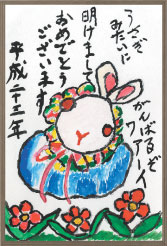 うさぎ
みたいに
がんばるぞ
ワァーイ
明けまして
おめでとう
ございます
平成二十三年